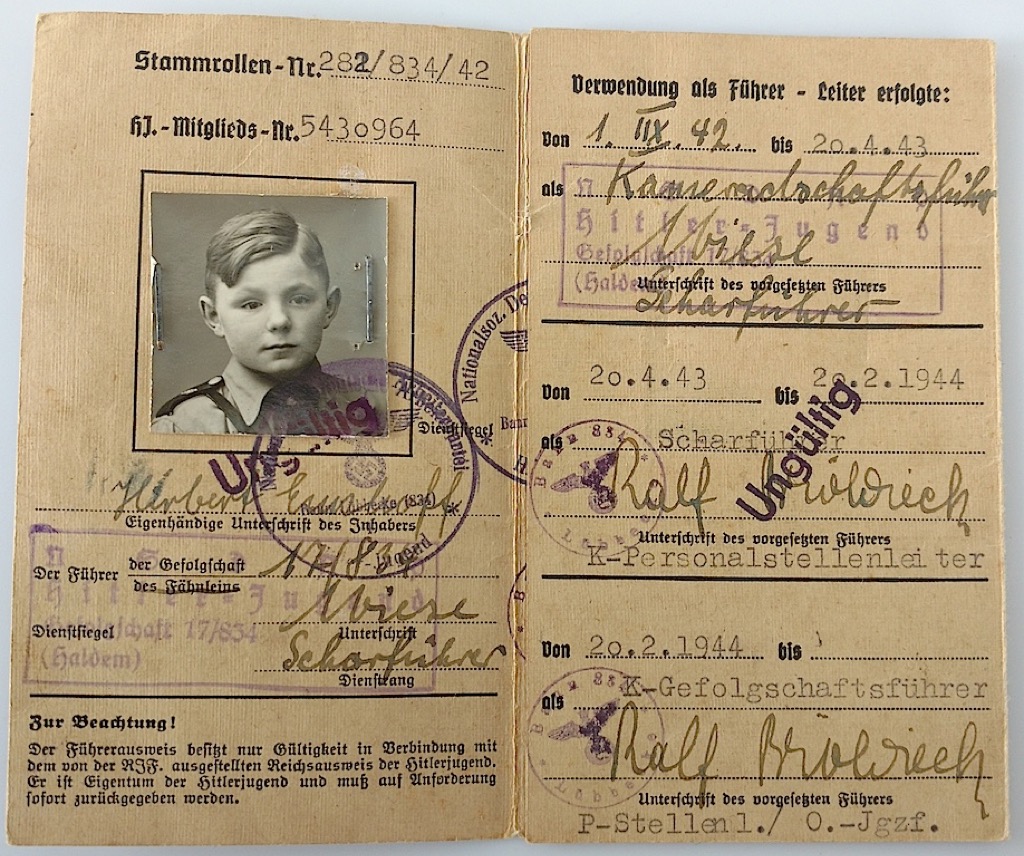 Stammrollen-Nr. 282/834/42
HJ.-Mitglieds-Nr. 5430964
Dienstsiegel
Ungültig
Herbert
Eigenhändige Unterschrift des Inhabers
Der Führer der Gefolgschaft 17/834
des Fähnleins
Wiese
Dienstsiegel Unterschrift
Scharführer
Dienstrang
Hitler-Jugend
Gefolgschaft 17/834
(Haldem)
Zur Beachtung!
Der Führerausweis besitzt nur Gültigkeit in Verbindung mit
dem von der RJF. ausgestellten Reichsausweis der Hitlerjugend.
Er ist Eigentum der Hitlerjugend und muß auf Anforderung
sofort zurückgegeben werden.
Nationalsoz. De
Bann
Verwendung als Führer - Leiter erfolgte:
Von 1. IIX. 42. bis 20.4.43
als Kameradschaftsführer
Hitler-Jugend
Wiese
Gefolgschaft 17/834
(Haldem)
Unterschrift des vorgesetzten Führers
Scharführer
Von 20.4.43 bis 20.2.1944
als Scharführer
Ungültig
Bann 834
Lübbecke
Ralf
Unterschrift des vorgesetzten Führers
K-Personalstellenleiter
Von 20.2.1944 bis
als K-Gefolgschaftsführer
Bann 834
Lübbecke
Ralf
Unterschrift des vorgesetzten Führers
P-Stellenl./ O.-Jgzf.